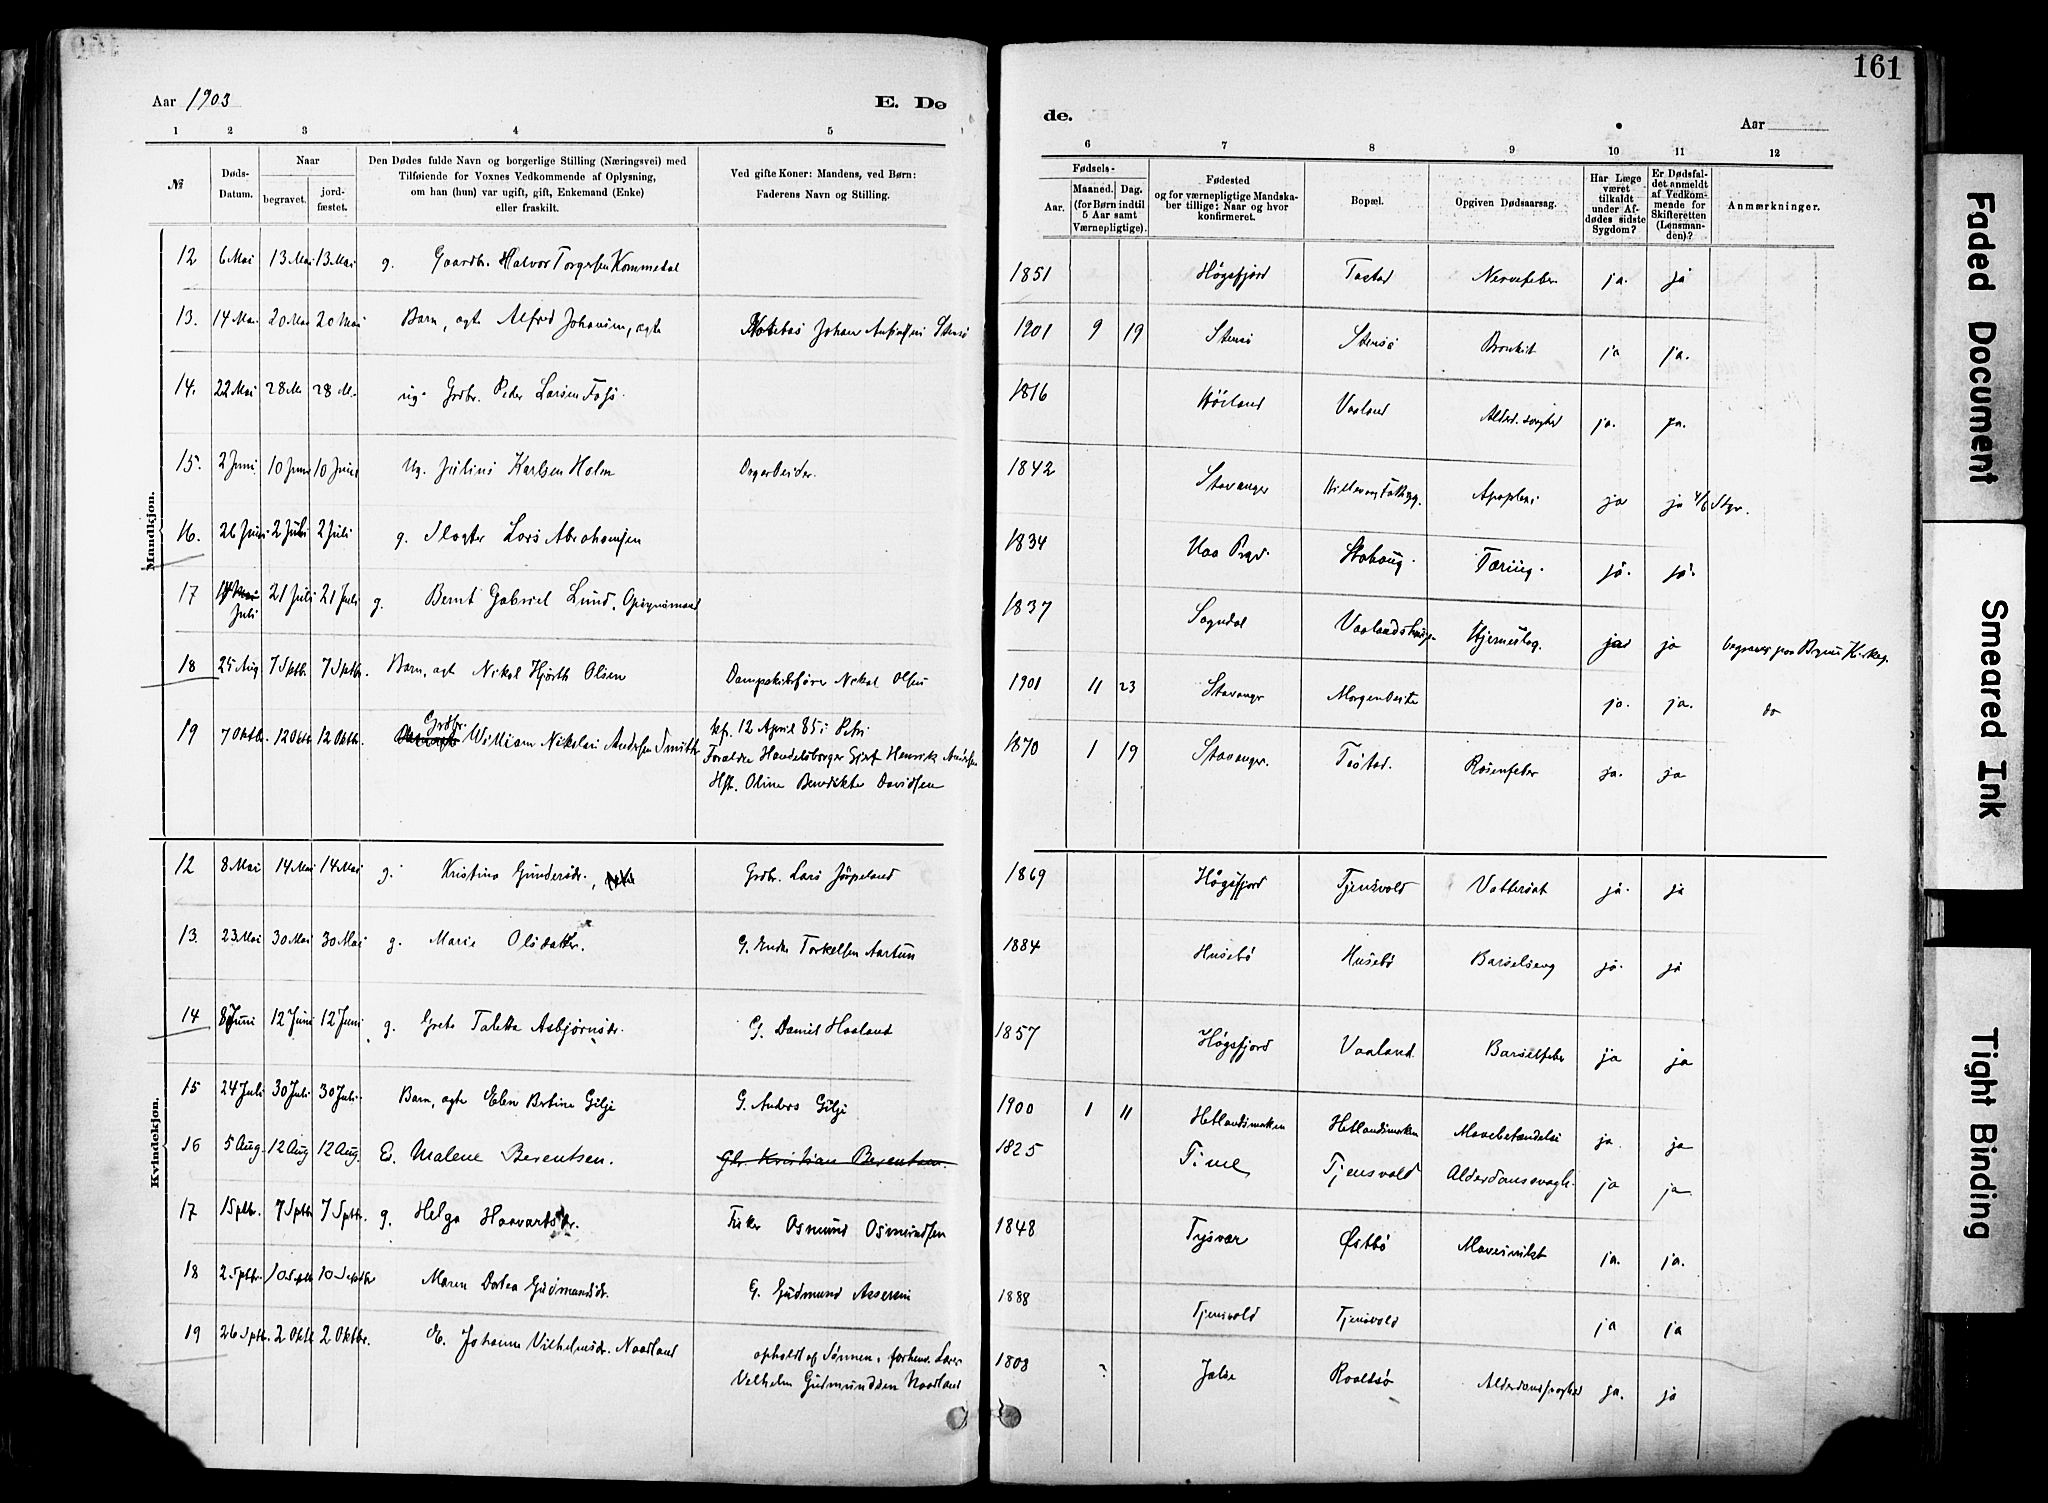 161
Aar 1903
E. Dø
de.
Aar
1 2 3 4 5
6 7 8 9 10 11 12
№
Døds-Datum.
Naar
begravet.
jord-fæstet.
Den Dødes fulde Navn og borgerlige Stilling (Næringsvei) med
Tilføiende for Voxnes Vedkommende af Oplysning,
om han (hun) var ugift, gift, Enkemand (Enke)
eller fraskilt.
Ved gifte Koner: Mandens, ved Børn:
Faderens Navn og Stilling.
Fødsels-
Aar.
Maaned. Dag.
(for Børn indtil
5 Aar samt
Værnepligtige).
Fødested
og for værnepligtige Mandska-
ber tillige: Naar og hvor
konfirmeret.
Bopæl.
Opgiven Dødsaarsag.
Har Læge
været
tilkaldt
under Af-
dødes sidste
Sygdom?
Er Dødsfal-
det anmeldt
af Vedkom-
mende for
Skifteretten
(Lensman-
den)?
Anmærkninger.
Mandkjøn.
12 6 Mai 13 Mai 13 Mai g. Gaardbr. Halvor Torgersen Kommedal 1851 Høgsfjord Tastad Nervefeber ja. ja
13. 14 Mai 20 Mai 20 Mai Barn, ægte Alfred Johannes, ægte Johan Stensø 1901 9 19 Stensø Stensø Bronkit ja ja.
14. 22 Mai 28 M. 28 M. ug. Grdbr. Peder Larsen 1816 Höiland Vaaland Alderd. svaghed ja. ja.
15. 2 Juni 10 Juni 10 Juni Ug. Julius Karlsen Holm Dagarbeider. 1842 Stavanger Hillevaag Fattigg. Apoplexi ja ja 4/6 Stgr.
16. 26 Juni 2 Juli 2 Juli g. Slagter Lars Abrahamsen 1834 Stokoug. Tæring. ja. ja.
17 Juli 21 Juli 21 Juli g. Bernt Gabriel Lund, Opsynsmand 1837 Sogndal Hjerneslag. ja ja begravet paa Kirkeg.
18 25 Aug 7 Sptb. 7 Sptbr. Barn, ægt Nikol Hjorth Olsen Dampskibsfører Nikol Olsen 1901 11 23 Stavanger ja. ja. do
19 7 Oktbr. 12 Oktbr. 12 Oktbr. Grdbr. William Nikolai Andersen Smith kf. 12 April 85 i Petri
Forældre Handelsborger Henrik Andersen
Hst. Oline Benedikte Davidsen 1870 1 19 Stavanger. Tastad. Rosenfeber ja. ja
Kvindekjøn.
12 8 Mai 14 Mai 14 Mai g. Kristina Gundersdr., Grdbr. Lars Jøspeland 1869 Høgsfjord Tjensvold Vattersot ja. ja
13. 23 Mai 30 Mai 30 Mai g. Marie Olsdatter. G. Endre Torkelsen Aartun 1884 Husebø Husebø Barselseng ja. ja
14 8 Juni 12 Juni 12 Juni g. Grete Taletta Asbjørnsdr. G. Daniel Haaland 1857 Høgsfjord Vaaland Barselfeber ja ja
15 24 Juli 30 Juli 30 Juli. Barn, ægte Elen Bertine Gilje G. Anders Gilje 1900 1 11 Hetlandsmarken Hetlandsmarken Mavebetændelse ja ja
16 5 Aug. 12 Aug 12 Aug. E. Malene Berentsen. Gbr. Kristian Berentsen. 1825 Time Tjensvold Alderdomssvagh. ja ja
17 1 Sptbr. 7 Sptb 7 Sptbr. g. Helga Haavartsdr. Fisker Osmund Osmundsen 1848 Tysvær Østbø ja. ja.
18 2 Sptbr. 10 Sptb 10 Septbr Maren Dortea Gudmundsdr. G. Gudmund Assersen 1888 Tjensvold Tjensvold ja ja
19 26 Sptbr. 2 Oktb 2 Oktbr. E. Johanne Vilhelmsdr. Naadland opholdt af Sønnen, forhenv. Lærer
Velhelm Gudmundsen Naadland 1808 ? Roaldsø Alderdomssvaghed ja. ja
Faded Document
Smeared Ink
Tight Binding